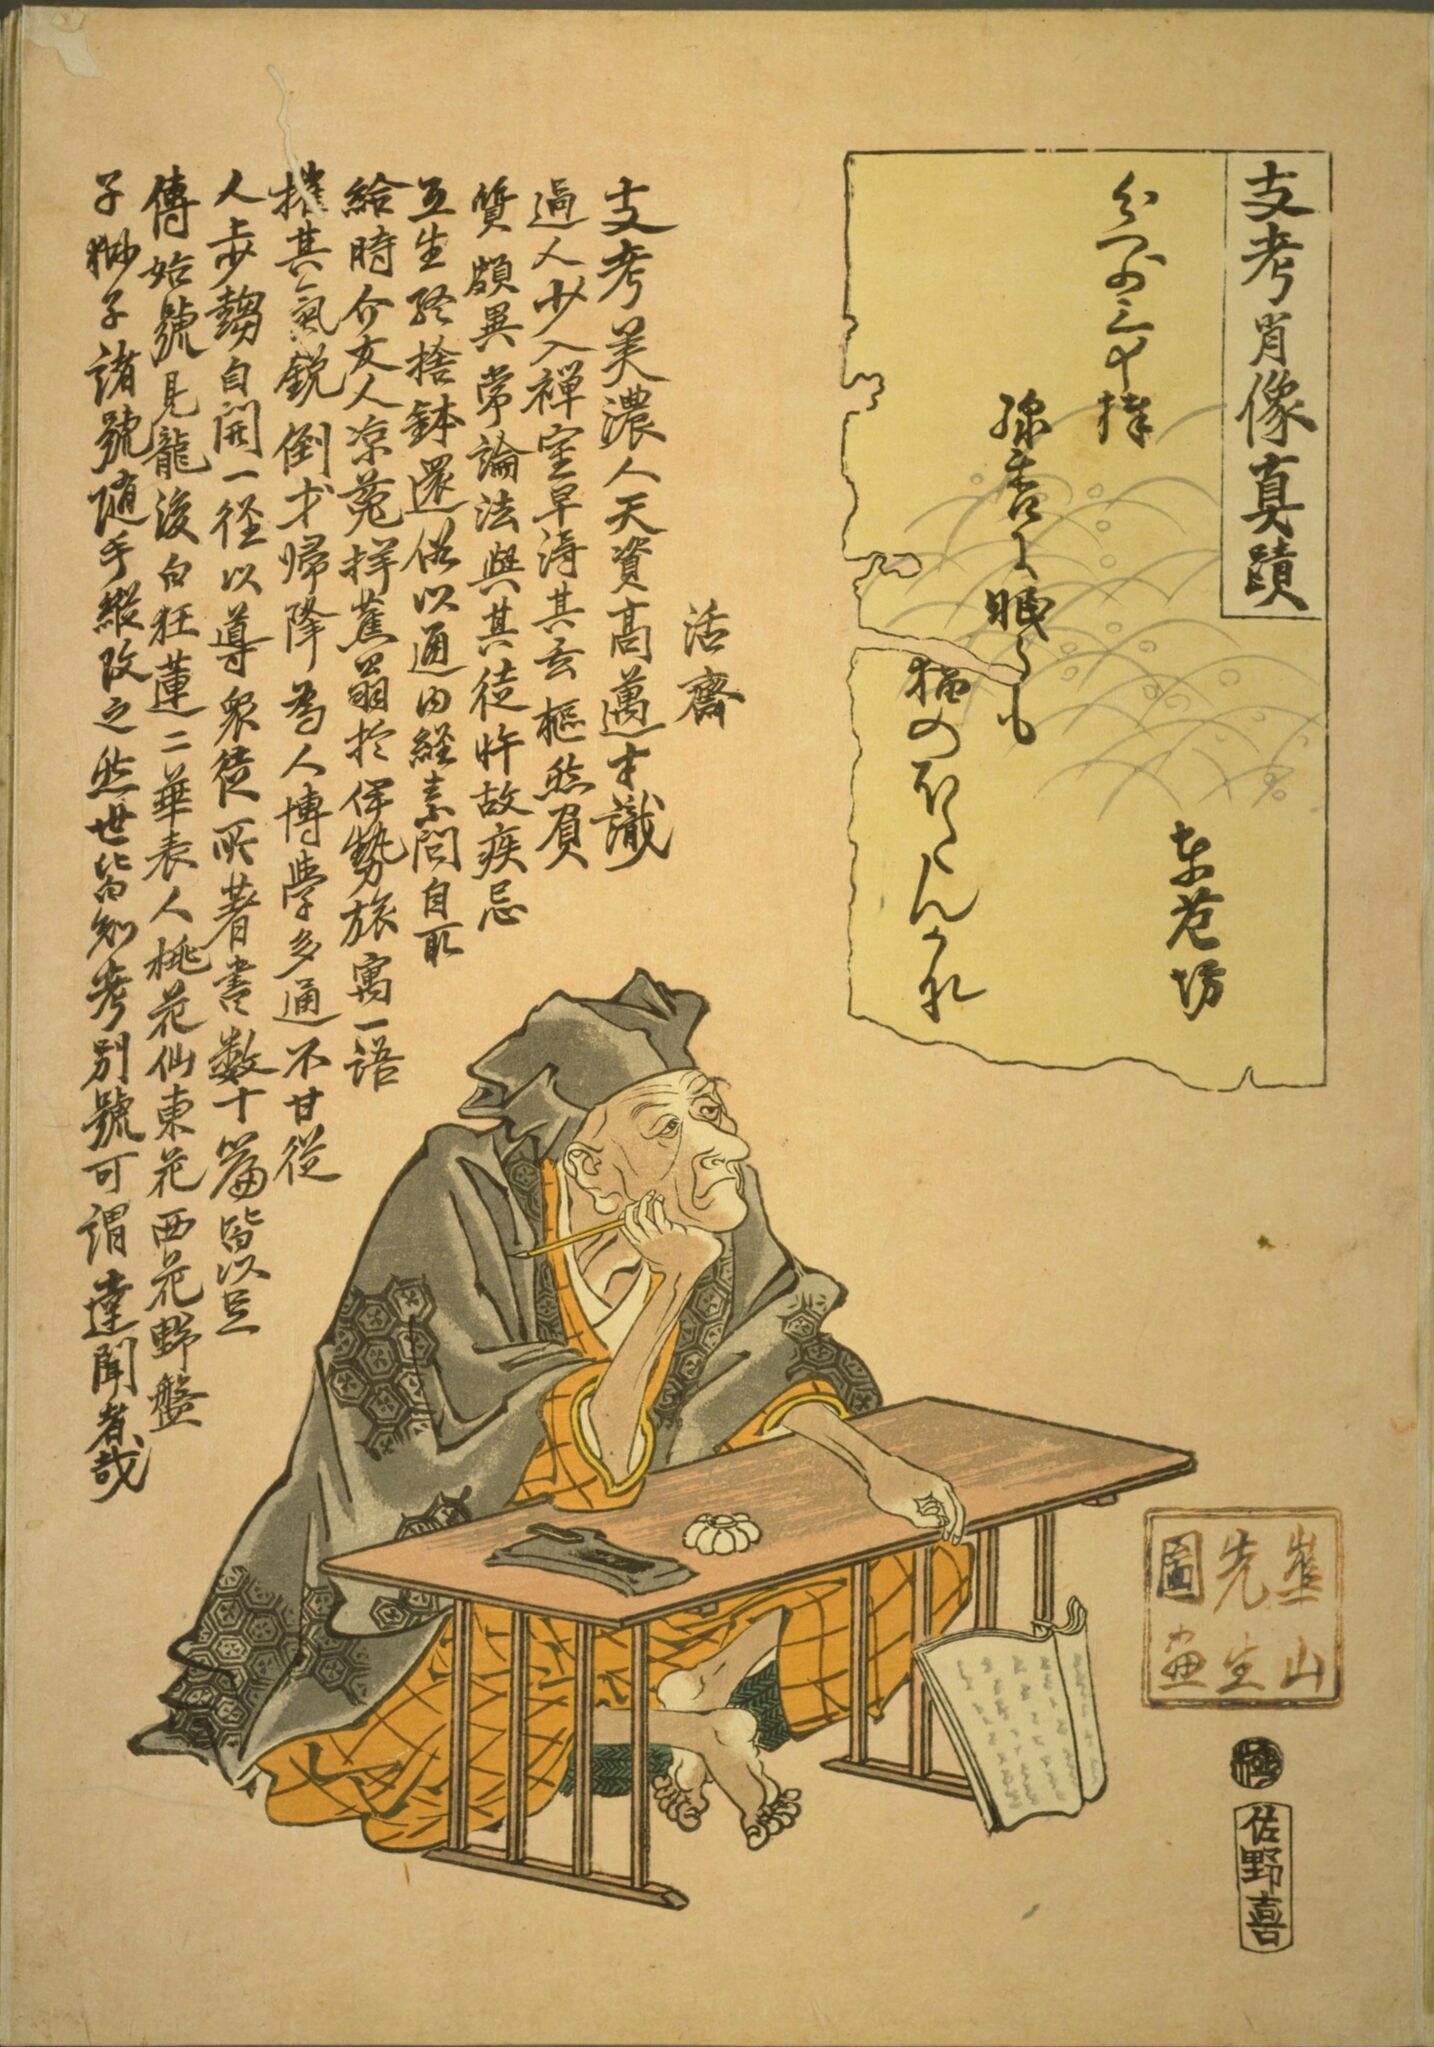 支考肖像真蹟
東花坊
猫の
活齋
支考美濃人天資高邁才識
過人少入禪室早得其玄樞然負
質頗異常論法與其徒忤故疾忌
互生終捨鉢還俗以通内経素問自取
給時介女人凉菟拝蕉翁於伊勢旅寓一語
摧其氣鋭倒才帰降為人博學多通不甘從
人歩趨自開一径以導衆徒所著書數十篇皆以
傳始號見龍後白狂蓮二華表人桃花仙東花西花野盤
子獅子諸號随手縦改之然世皆知考別號可謂達聞者哉
崋山
先生
圖画
佐野喜